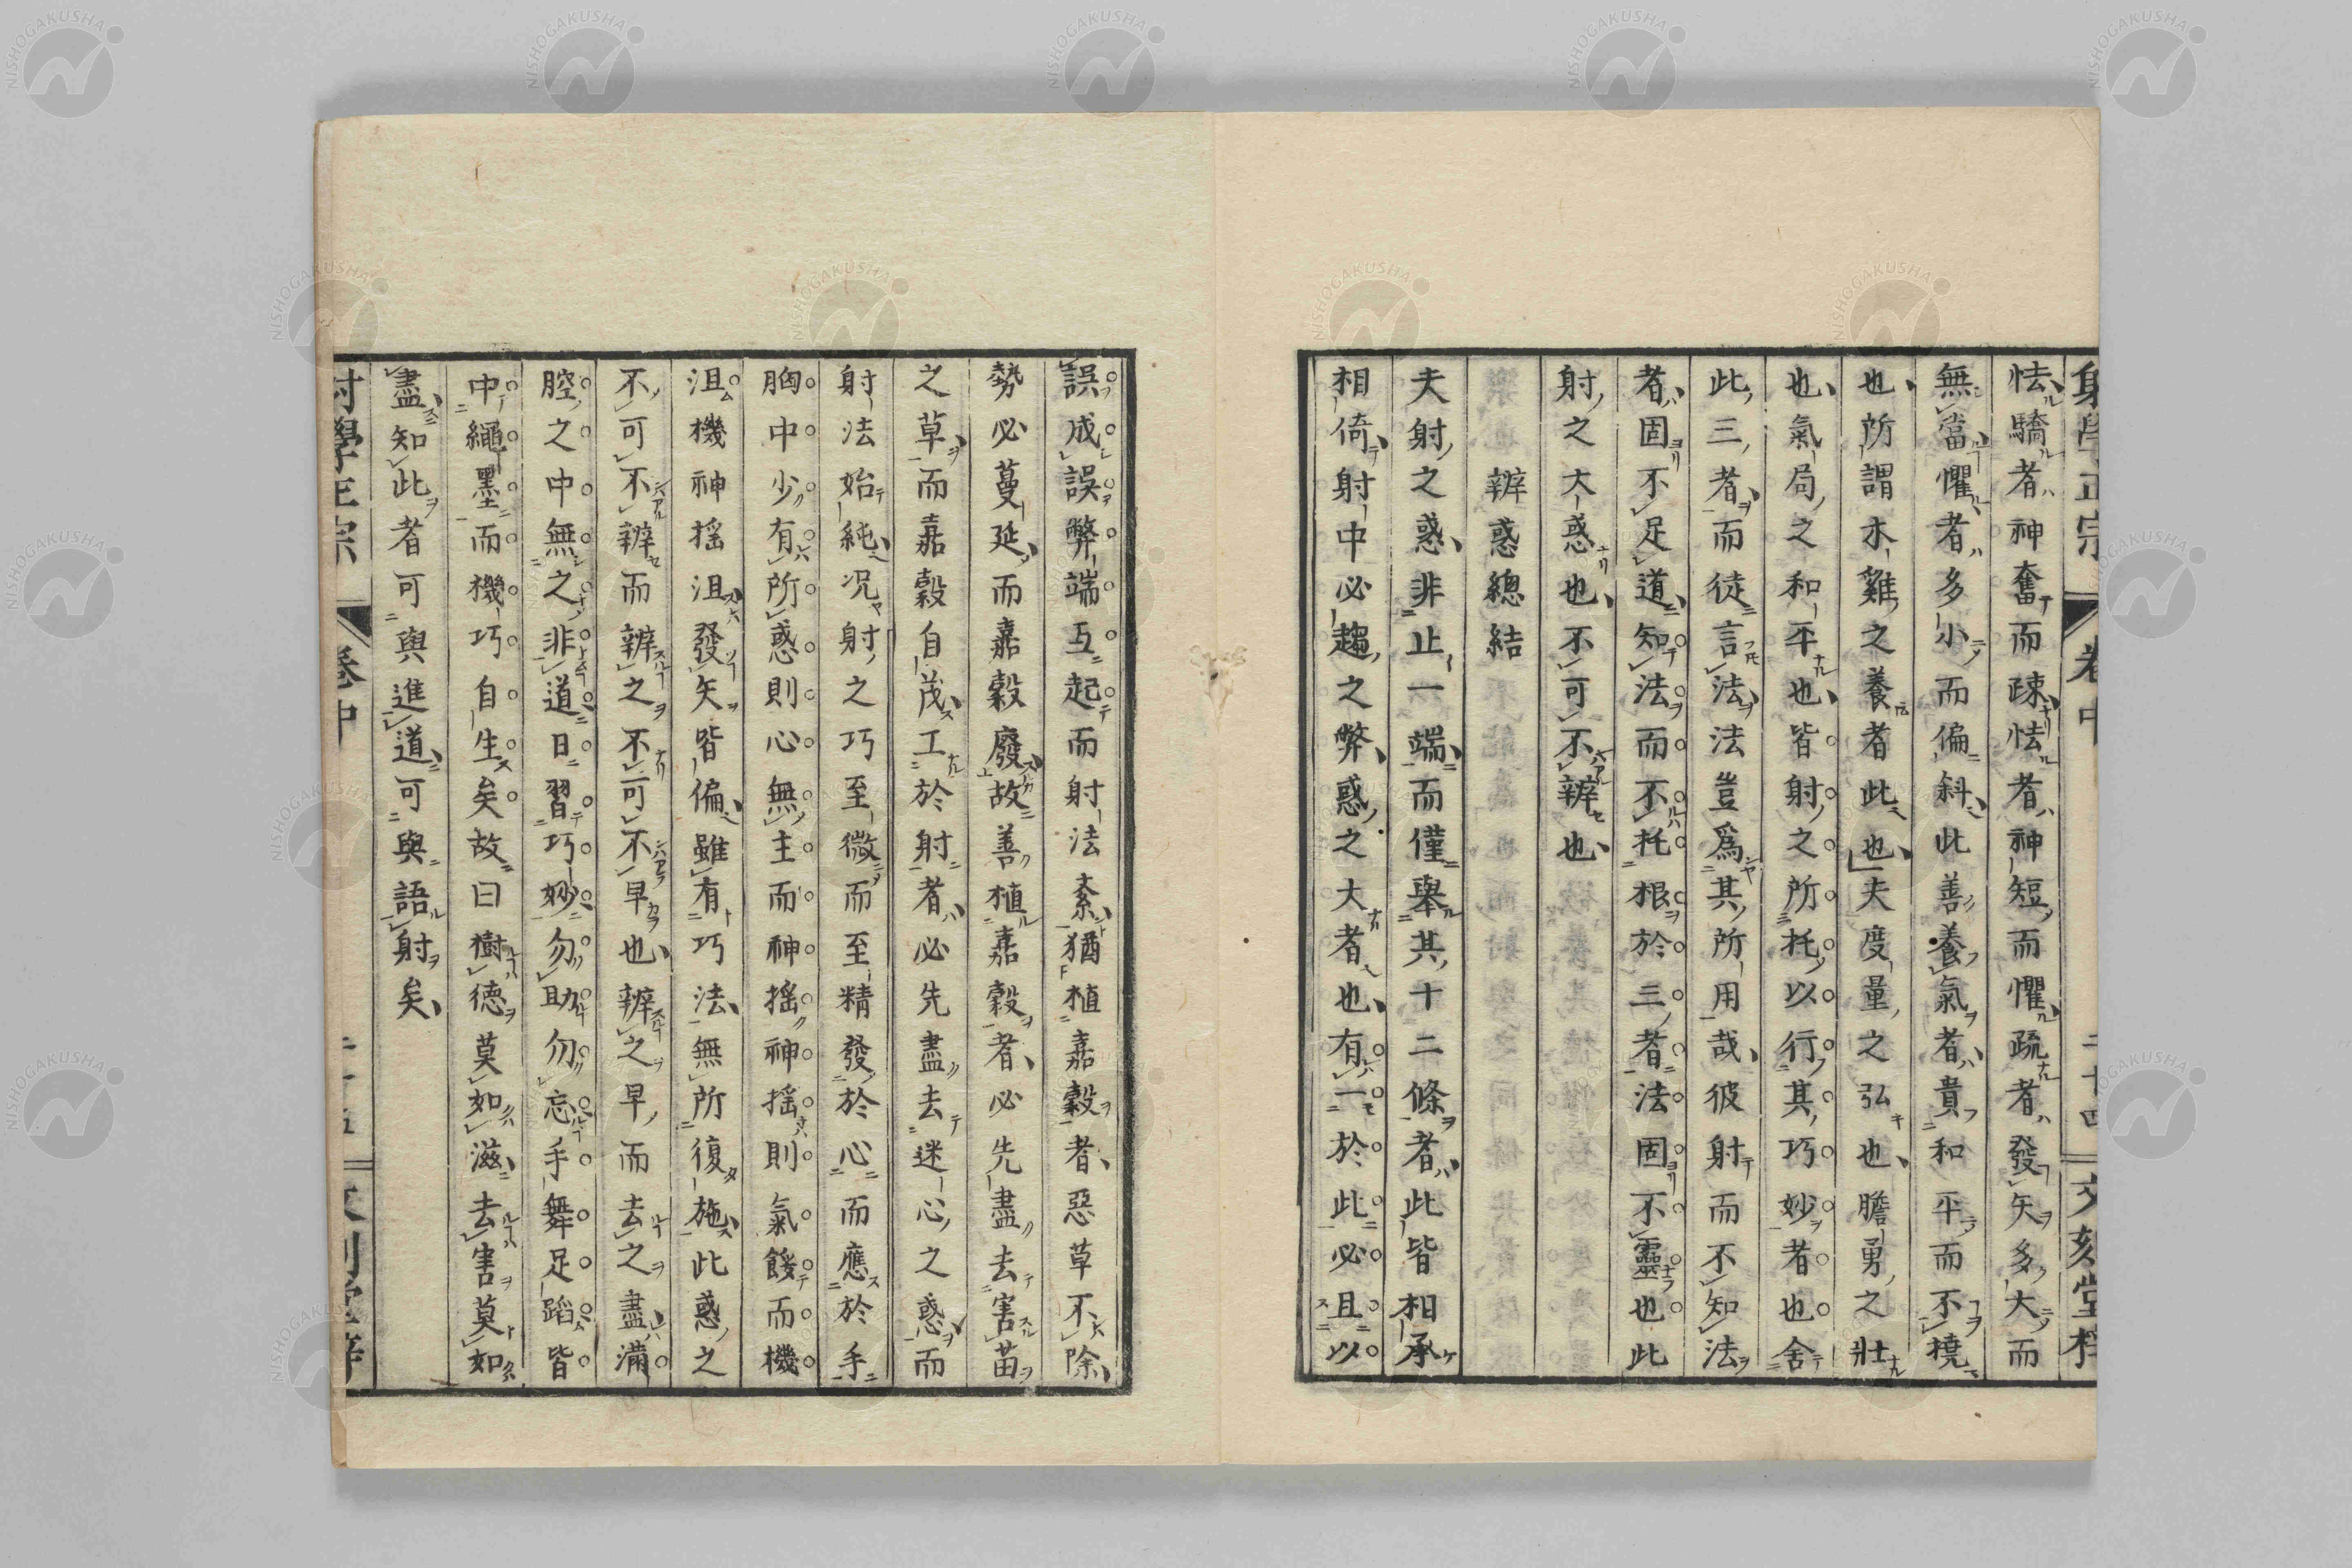 射學正宗 卷中 二十四 文刻堂梓
怯驕者神奮而疎怯者神短而懼疏者發矢多大而
無當懼者多小而偏斜此善養氣者貴和平而不撓
也所謂木雞之養者此也夫度量之弘也膽勇之壯
也氣局之和平也皆射之所托以行其巧妙者也舍
此三者而徒言法法豈爲其所用哉彼射而不知法
者固不足道知法而不托根於三者法固不靈也此
射之大惑也不可不辨也
辨惑總結
夫射之惑非止一端而僅舉其十二條者此皆相承
相倚射中必趨之弊惑之大者也有一於此必且以
誤成誤弊端互起而射法紊猶植嘉穀者惡草不除
勢必蔓延而嘉穀廢故善植嘉穀者必先盡去害苗
之草而嘉穀自茂工於射者必先盡去迷心之惑而
射法始純况射之巧至微而至精發於心而應於手
胸中少有所惑則心無主而神搖神搖則氣餒而機
沮機神搖沮發矢皆偏雖有巧法無所復施此惑之
不可不辨而辨之不可不早也辨之早而去之盡滿
腔之中無之非道日習巧妙勿助勿忘手舞足蹈皆
中繩墨而機巧自生矣故曰樹德莫如滋去害莫如
盡知此者可與進道可與語射矣
射學正宗 卷中 文刻堂梓
NISHOGAKUSHA